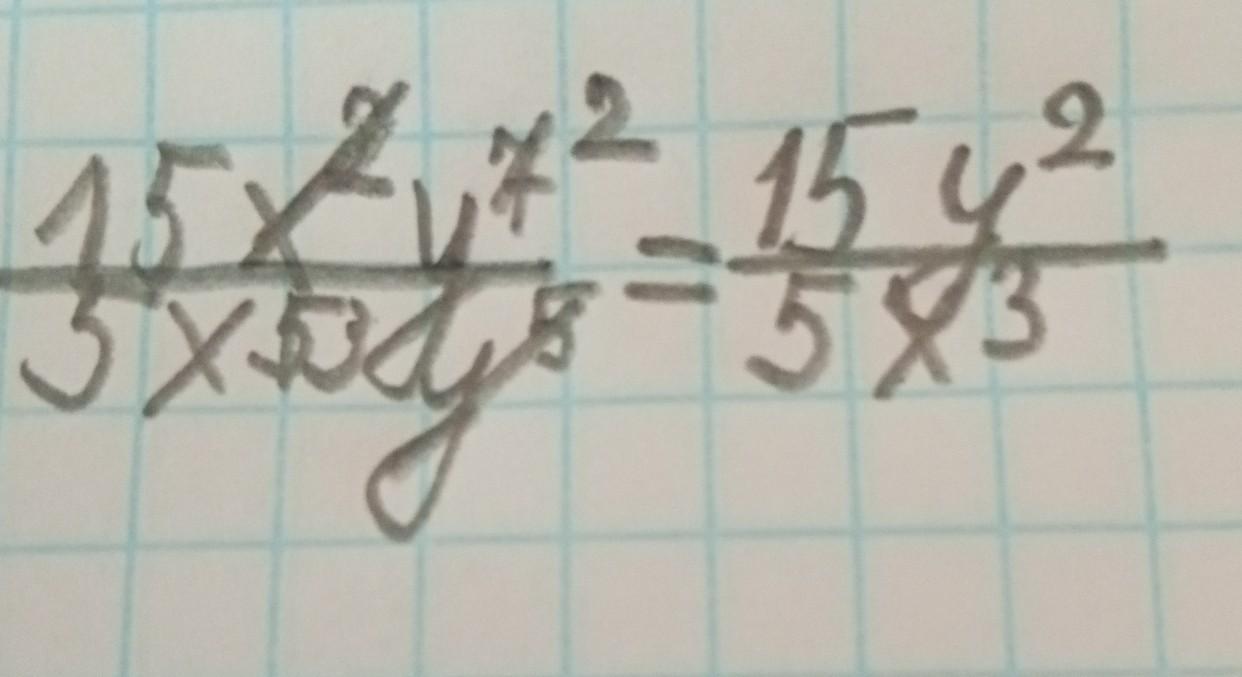 15x²y⁷ ² / 5x⁵ ³y⁵ = 15y² / 5x³